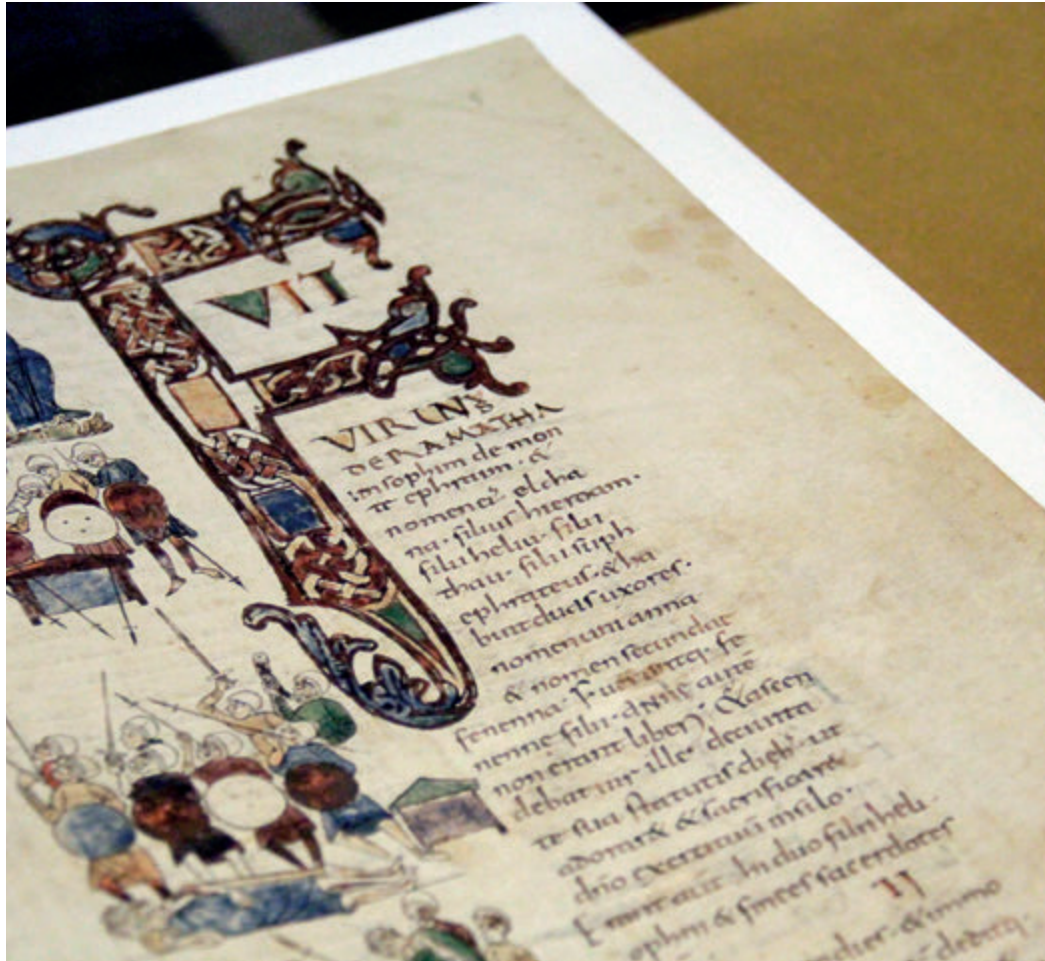 VIT
VIR UNUS
DE RAMATHA
im sophim de mon
te ephraim · &
nomen ei elcha
na · filius hieroam ·
filii heliu · filii
thau · filii suph
ephrateus · & ha
buit duas uxores ·
nomen uni anna
& nomen secundae
fenenna · Fuerantq; fe
nenne filii · annę autē
non erant liberi; & ascen
debat uir ille de ciuita
te sua statutis diebꝰ · ut
adorar& & sacrificar&
dn̄o exercituū in silo ·
Erant aut̄ ibi duo filii heli ·
ophni & finees sacerdotes
II
dies · & immo
deditq;